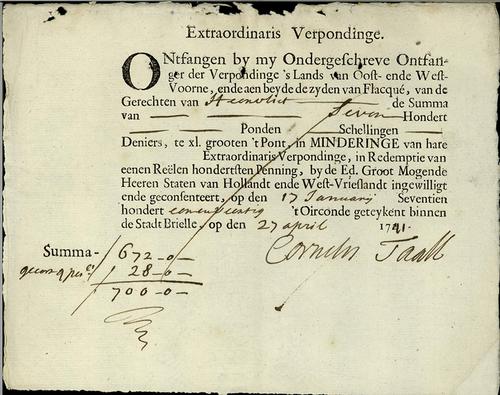 Extraordinaris Verpondinge.
ONtfangen by my Ondergeschreve Ontfan-
ger der Verpondinge 's Lands van Oost- ende West-
Voorne, ende aen beyde de zyden van Flacqué, van de
Gerechten van Heenvliet de Summa
van Seven Hondert
Ponden Schellingen
Deniers, te xl. grooten 't Pont, in MINDERINGE van hare
Extraordinaris Verpondinge, in Redemptie van
eenen Reëlen hondertsten Penning, by de Ed. Groot Mogende
Heeren Staten van Hollandt ende West-Vrieslandt ingewilligt
ende geconsenteert, op den 17 Januarij Seventien
hondert eenenveertig 't Oirconde geteykent binnen
de Stadt Brielle, op den 27 april 1741.
Summa- 672-0- Cornelis Taall
28-0-
700-0-